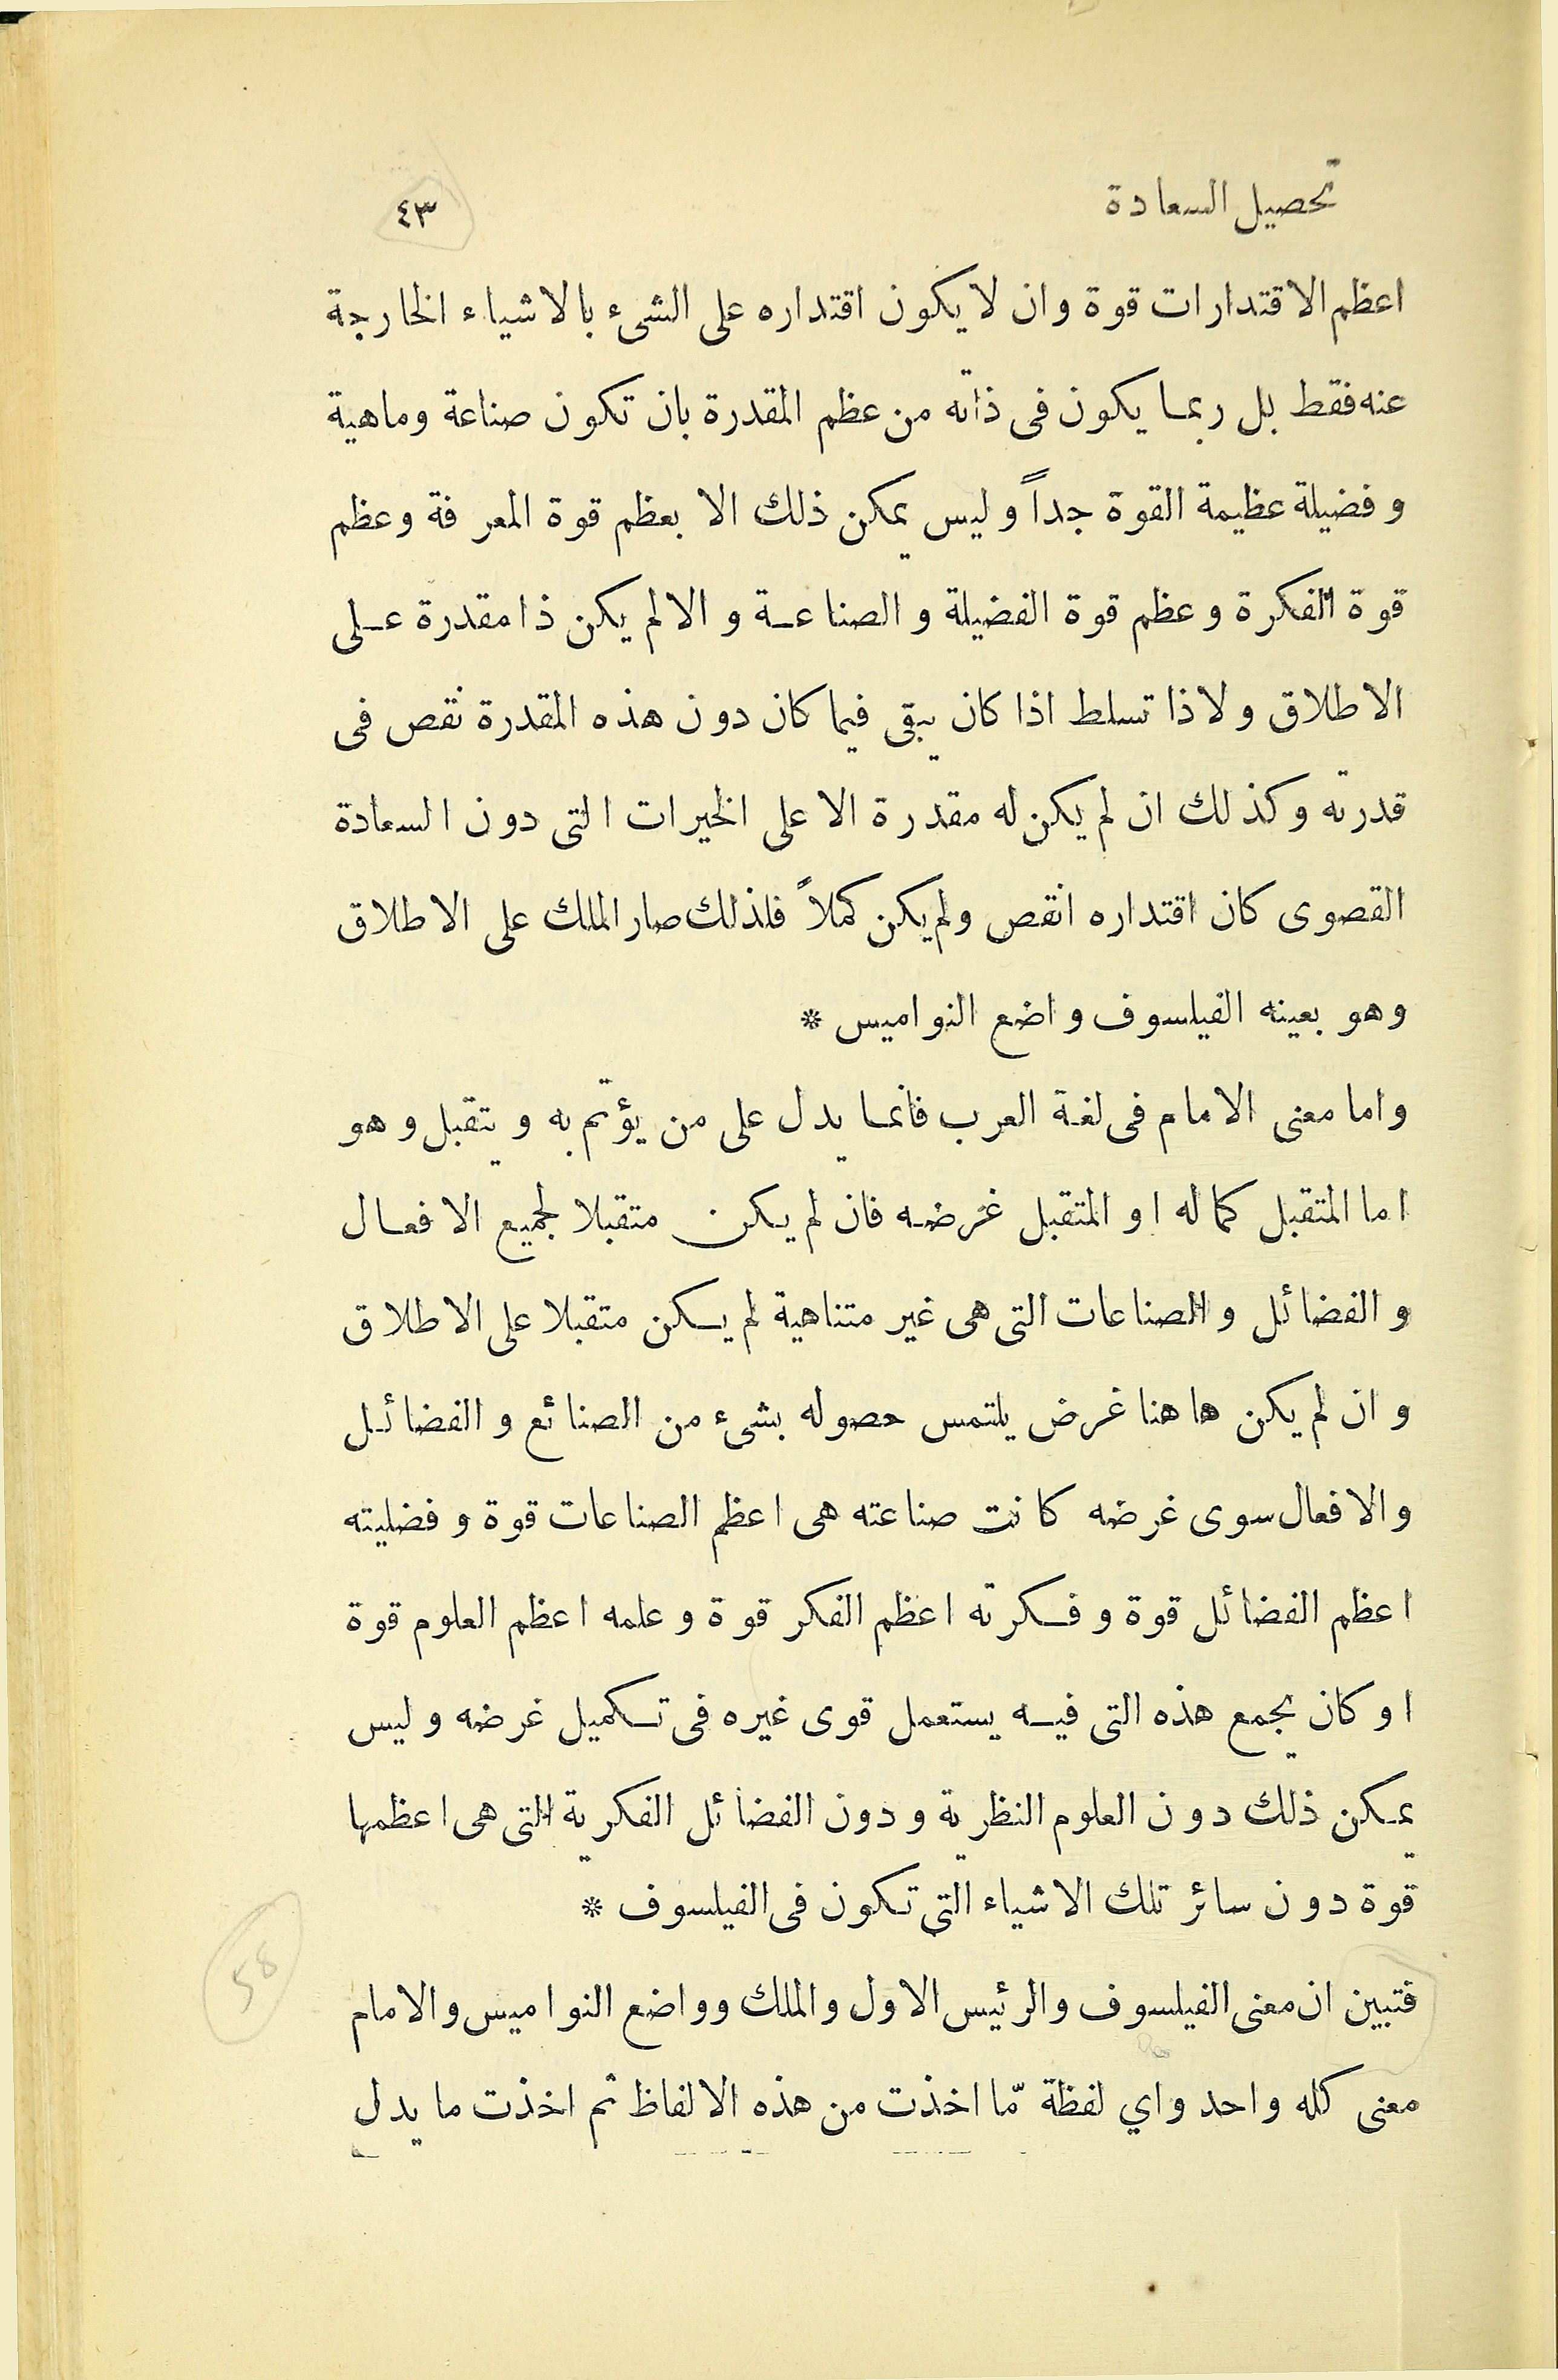 تحصيل السعادة ٤٣
اعظم الاقتدارات قوة وان لا يكون اقتداره على الشىء بالاشياء الخارجة
عنه فقط بل ربما يكون فى ذاته من عظم المقدرة بان تكون صناعة وماهية
وفضيلة عظيمة القوة جداً وليس يمكن ذلك الا بعظم قوة المعرفة وعظم
قوة الفكرة وعظم قوة الفضيلة والصناعة والا لم يكن ذا مقدرة على
الاطلاق ولا ذا تسلط اذا كان يبقى فيما كان دون هذه المقدرة نقص فى
قدرته وكذلك ان لم يكن له مقدرة الا على الخيرات التى دون السعادة
القصوى كان اقتداره انقص ولم يكن كملاً فلذلك صار الملك على الاطلاق
وهو بعينه الفيلسوف واضع النواميس *
واما معنى الامام فى لغة العرب فانما يدل على من يؤتم به ويتقبل وهو
اما المتقبل كماله او المتقبل غرضه فان لم يكن متقبلا لجميع الافعال
والفضائل والصناعات التى هى غير متناهية لم يكن متقبلا على الاطلاق
وان لم يكن هاهنا غرض يلتمس حصوله بشىء من الصنائع والفضائل
والافعال سوى غرضه كانت صناعته هى اعظم الصناعات قوة وفضليته
اعظم الفضائل قوة وفكرته اعظم الفكر قوة وعلمه اعظم العلوم قوة
او كان يجمع هذه التى فيه يستعمل قوى غيره فى تكميل غرضه وليس
يمكن ذلك دون العلوم النظرية ودون الفضائل الفكرية التى هى اعظمها
قوة دون سائر تلك الاشياء التى تكون فى الفيلسوف *
58
فتبين ان معنى الفيلسوف والرئيس الاول والملك وواضع النواميس والامام
معنى كله واحد واي لفظة مّا اخذت من هذه الالفاظ ثم اخذت ما يدل